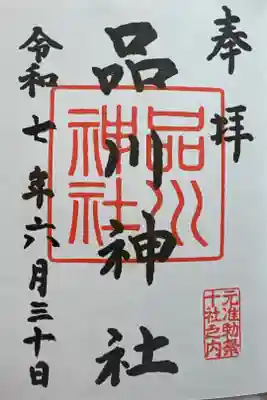 奉拝
品川神社
品川神社
元准勅祭
十社之内
令和七年六月三十日